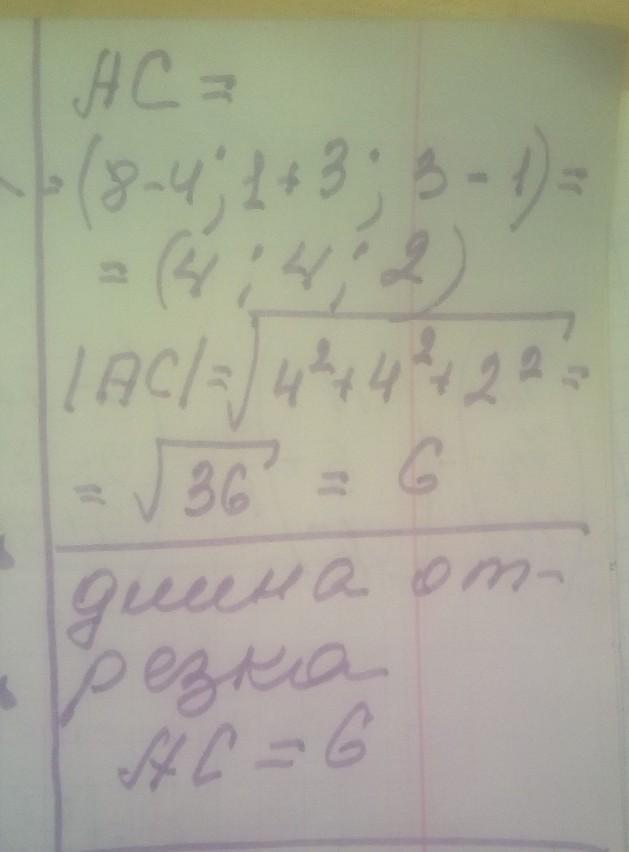 AC =
= (8-4; 1+3; 3-1) =
= (4; 4; 2)
|AC| = √4²+4²+2² =
= √36 = 6
длина от-
резка
AC = 6